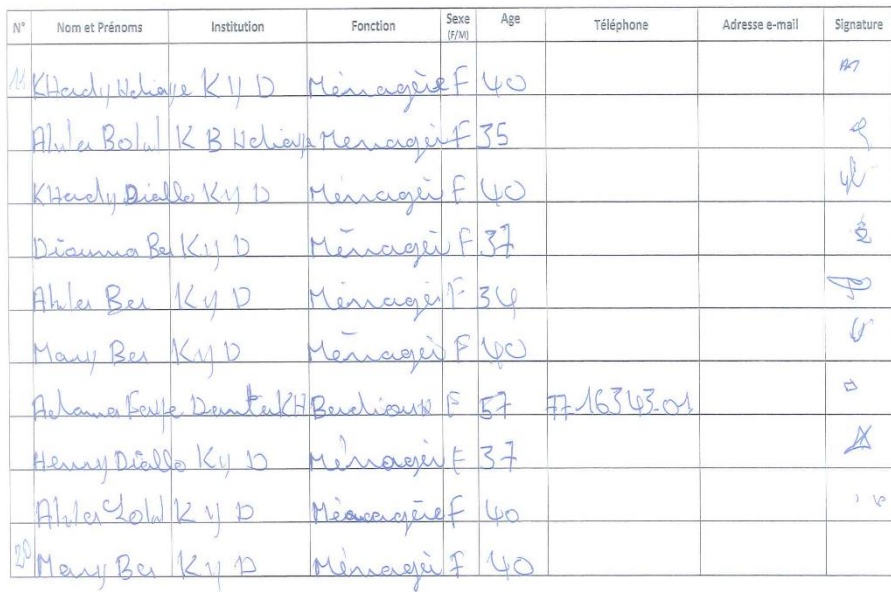 N° Nom et Prénoms Institution Fonction Sexe (F/M) Age Téléphone Adresse e-mail Signature
11 KHady Ndiaye K y D Ménagère F 40
K B Ndiaye Menagèr F 35
KHady Diallo Ky D Ménagèr F 40
Ky D Ménagèr F 37
Ky D Ménagèr F 34
Mary Ba Ky D Ménagèr F 40
Adama Faye F 57 77-16343-01
Henry Diallo Ky D Ménagèr F 37
K y D Ménagère F 40
20 Mary Ba K y D Ménagèr F 40